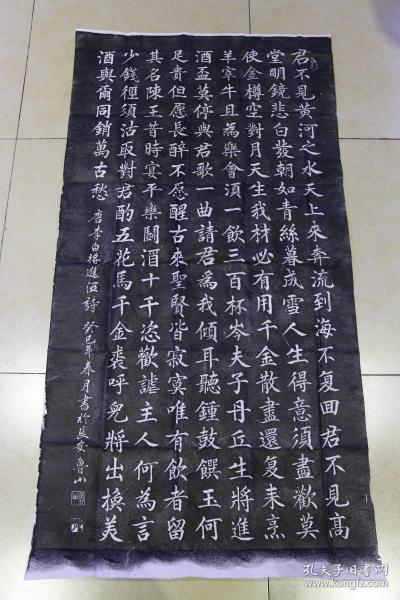 君不見黃河之水天上來奔流到海不复回君不見高
堂明鏡悲白发朝如青絲暮成雪人生得意須盡歡莫
使金樽空對月天生我材必有用千金散盡還复来烹
羊宰牛且為樂會須一飲三百杯岑夫子丹丘生將進
酒盃莫停與君歌一曲請君為我傾耳聽鍾鼓饌玉何
足貴但愿長醉不愿醒古來聖賢皆寂寞唯有飲者留
其名陳王昔時宴平樂鬪酒十千恣歡謔主人何為言
少錢徑須沽取對君酌五花馬千金裘呼兒將出換美
酒與爾同銷萬古愁 唐李白將進酒詩 癸巳年春月書於長安魯山
孔夫子旧书网
www.kongfz.com